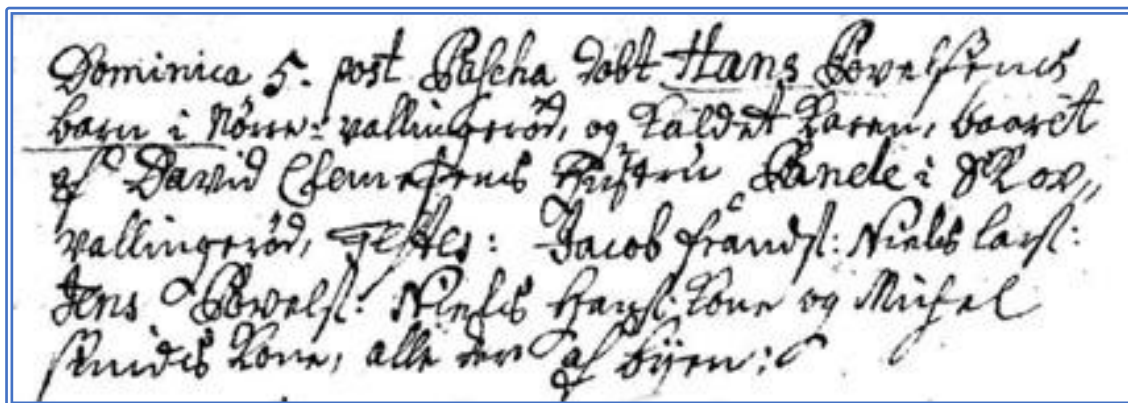 Dominica 5. post Pascha döbt Hans Povelsens
barn i Nörre=vallingeröd, og kaldet Karen, baaret
af David Clemesens Hustru i Skov,,
vallingeröd, Testes: Jacob Frandsl: Niels Larsl:
Jens Povelsl: Niels Hansl: kone og Michel
Smids kone, alle der af byen: